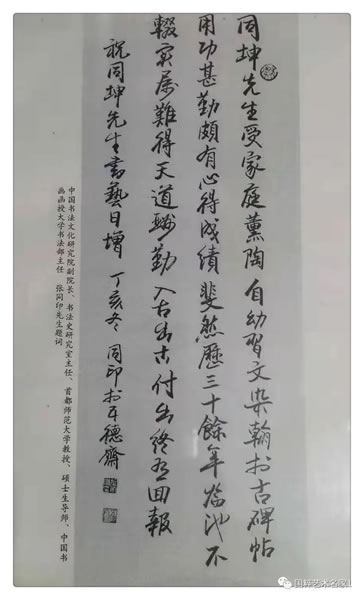 同坤先生受家庭薰陶自幼習文染翰於古碑帖
用功甚勤頗有心得成績斐然歷三十餘年臨池不
輟实属難得天道酬勤入古出古付出终有回報
祝同坤先生書藝日增 丁亥冬 同印於平德齋
中国书法文化研究院副院长、书法史研究室主任、首都师范大学教授、硕士生导师、中国书
画函授大学书法部主任 张同印先生题词
国粹艺术名家